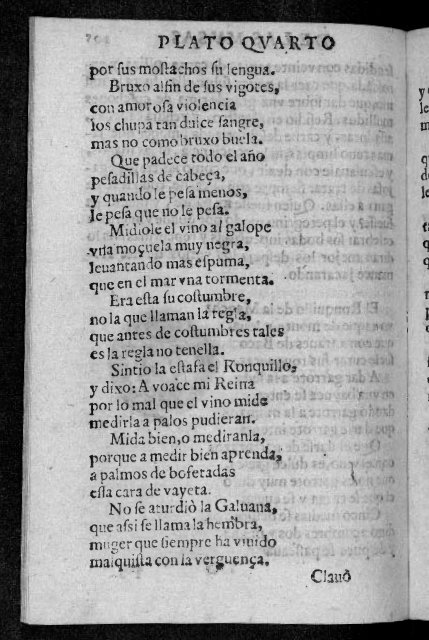 PLATO QVARTO
por sus mostachos su lengua.
Bruxo alfin de sus vigotes,
con amorosa violencia
los chupa tan dulce sangre,
mas no como bruxo buela.
Que padece todo el año
pesadillas de cabeça,
y quando le pesa menos,
le pesa que no le pesa.
Midiole el vino al galope
vna moçuela muy negra,
leuantando mas espuma,
que en el mar vna tormenta.
Era esta su costumbre,
no la que llaman la regla,
que antes de costumbres tales
es la regla no tenella.
Sintio la estafa el Ronquillo,
y dixo: A voace mi Reina
por lo mal que el vino mide
medirla a palos pudieran.
Mida bien, o mediranla,
porque a medir bien aprenda,
a palmos de bofetadas
esta cara de vayeta.
No se aturdiò la Galuana,
que assi se llama la hembra,
muger que siempre ha viuido
malquista con la verguença.
Claud